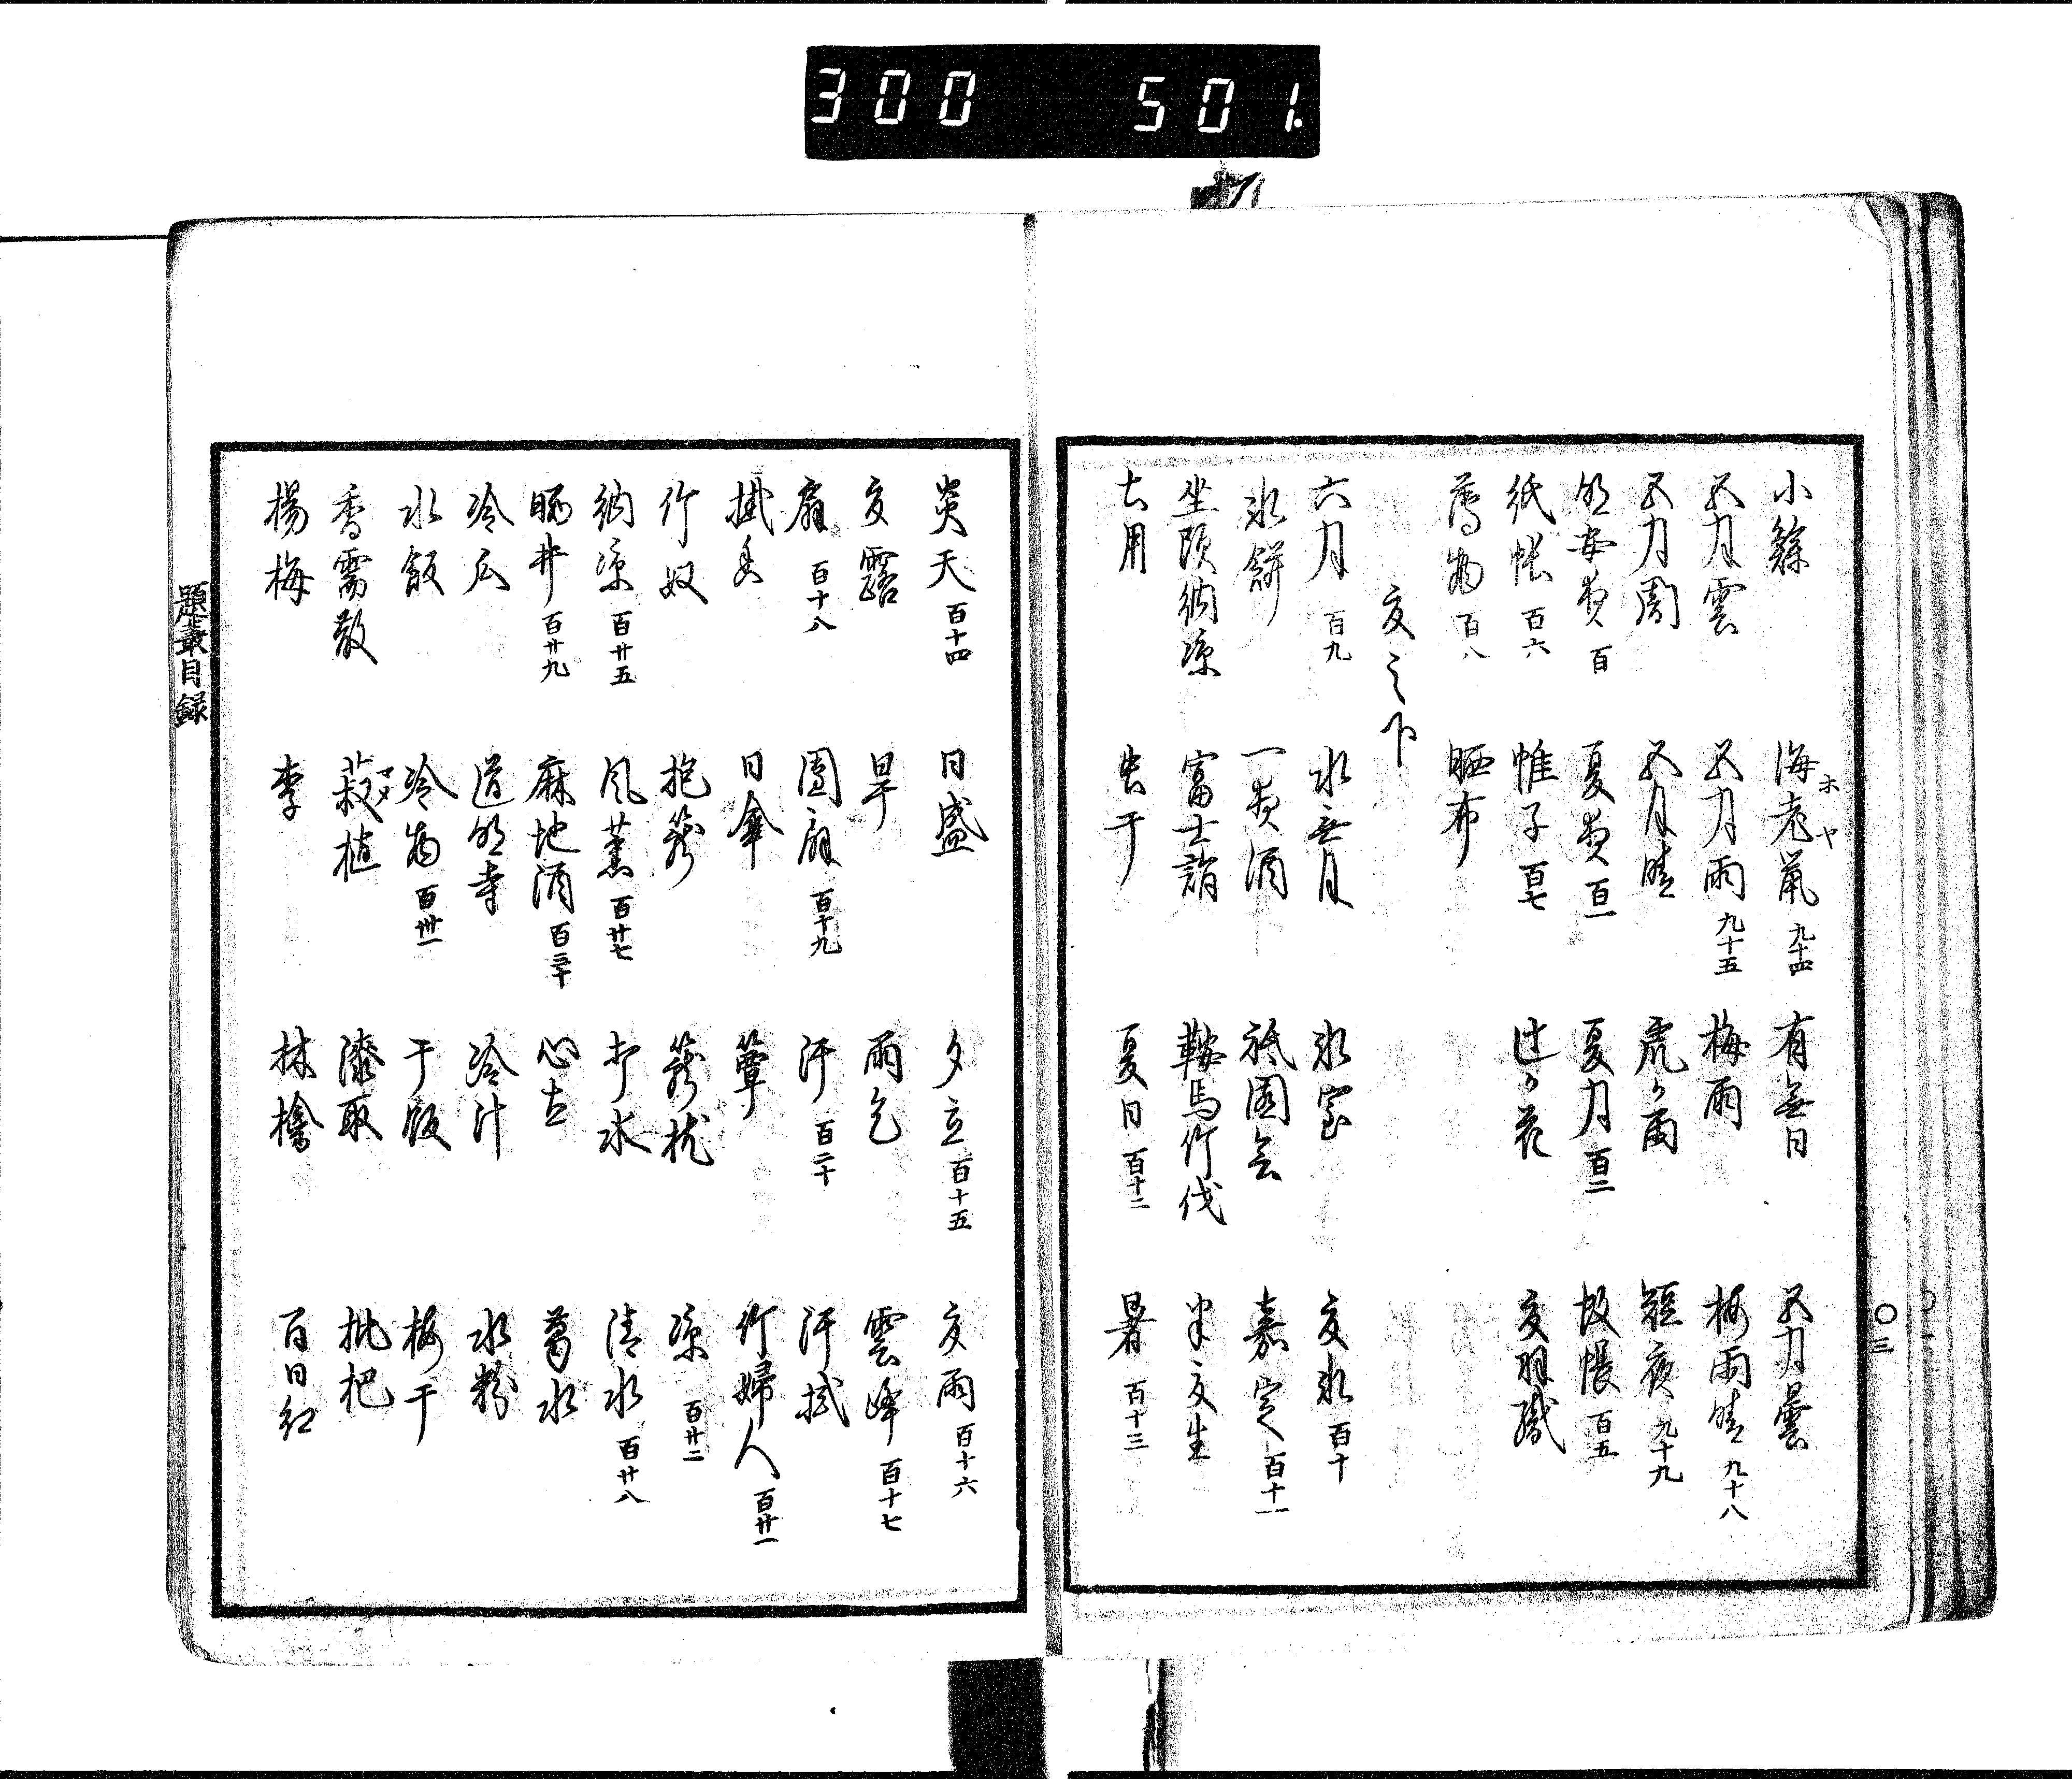 300 501.
小鯵 海老鼠 九十四 有無日 五月曇
ホヤ
五月雲 五月雨 九十五 梅雨 梅雨晴 九十八
五月闇 五月晴 虎ヶ雨 短夜 九十九
明安夜 百 夏夜 百一 夏月 百二 蚊帳 百五
紙帳 百六 帷子 百七 辻ヶ花 夏羽織
薄物 百八 晒布
夏之下
六月 百九 水無月 氷室 夏氷 百十
氷餅 一夜酒 祇園会 嘉定 百十一
坐頭納涼 富士詣 鞍馬竹伐 半夏生
土用 虫干 夏日 百十二 暑 百十三
〇三
炎天 百十四 日盛 夕立 百十五 夏雨 百十六
夏露 旱 雨乞 雲峰 百十七
扇 百十八 團扇 百十九 汗 百二十 汗拭
掛香 日傘 簟 竹婦人 百廿一
竹奴 抱籠 籠枕 涼 百廿二
納涼 百廿五 風薫 百廿七 打水 清水 百廿八
晒井 百廿九 麻地酒 百三十 心太 葛水
冷瓜 道明寺 冷汁 水粉
水飯 冷物 百卅一 干飯 梅干
香需散 菽植 漆取 枇杷
マメ
楊梅 李 林檎 百日紅
題叢目録